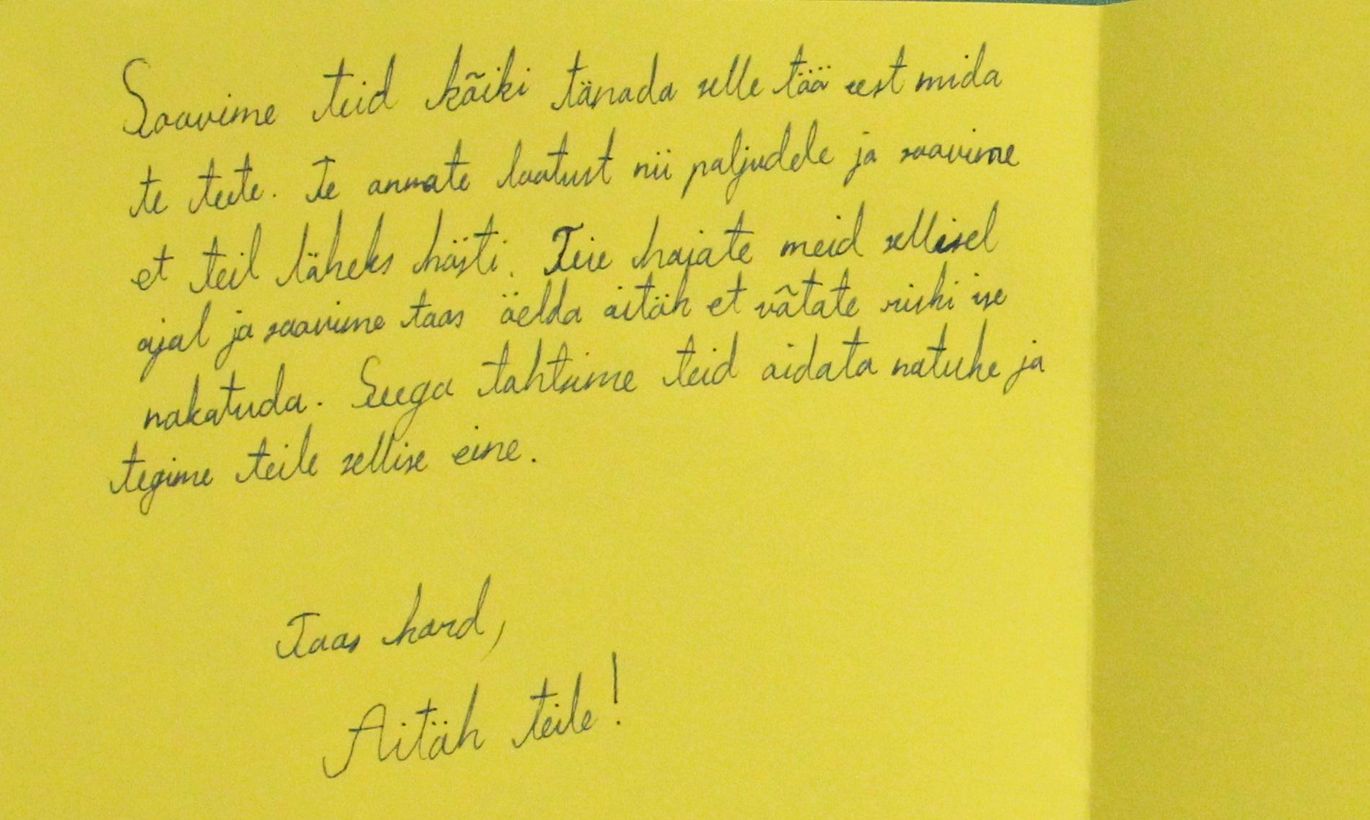 Soovime teid kõiki tänada selle töö eest mida
te teete. Te annate lootust nii paljudele ja soovime
et teil läheks hästi. Teie hoiate meid sellisel
ajal ja soovime taas öelda aitäh et võtate riski ise
nakatuda. Seega tahtsime teid aidata natuke ja
tegime teile sellise eine.
Taas kord,
Aitäh teile!